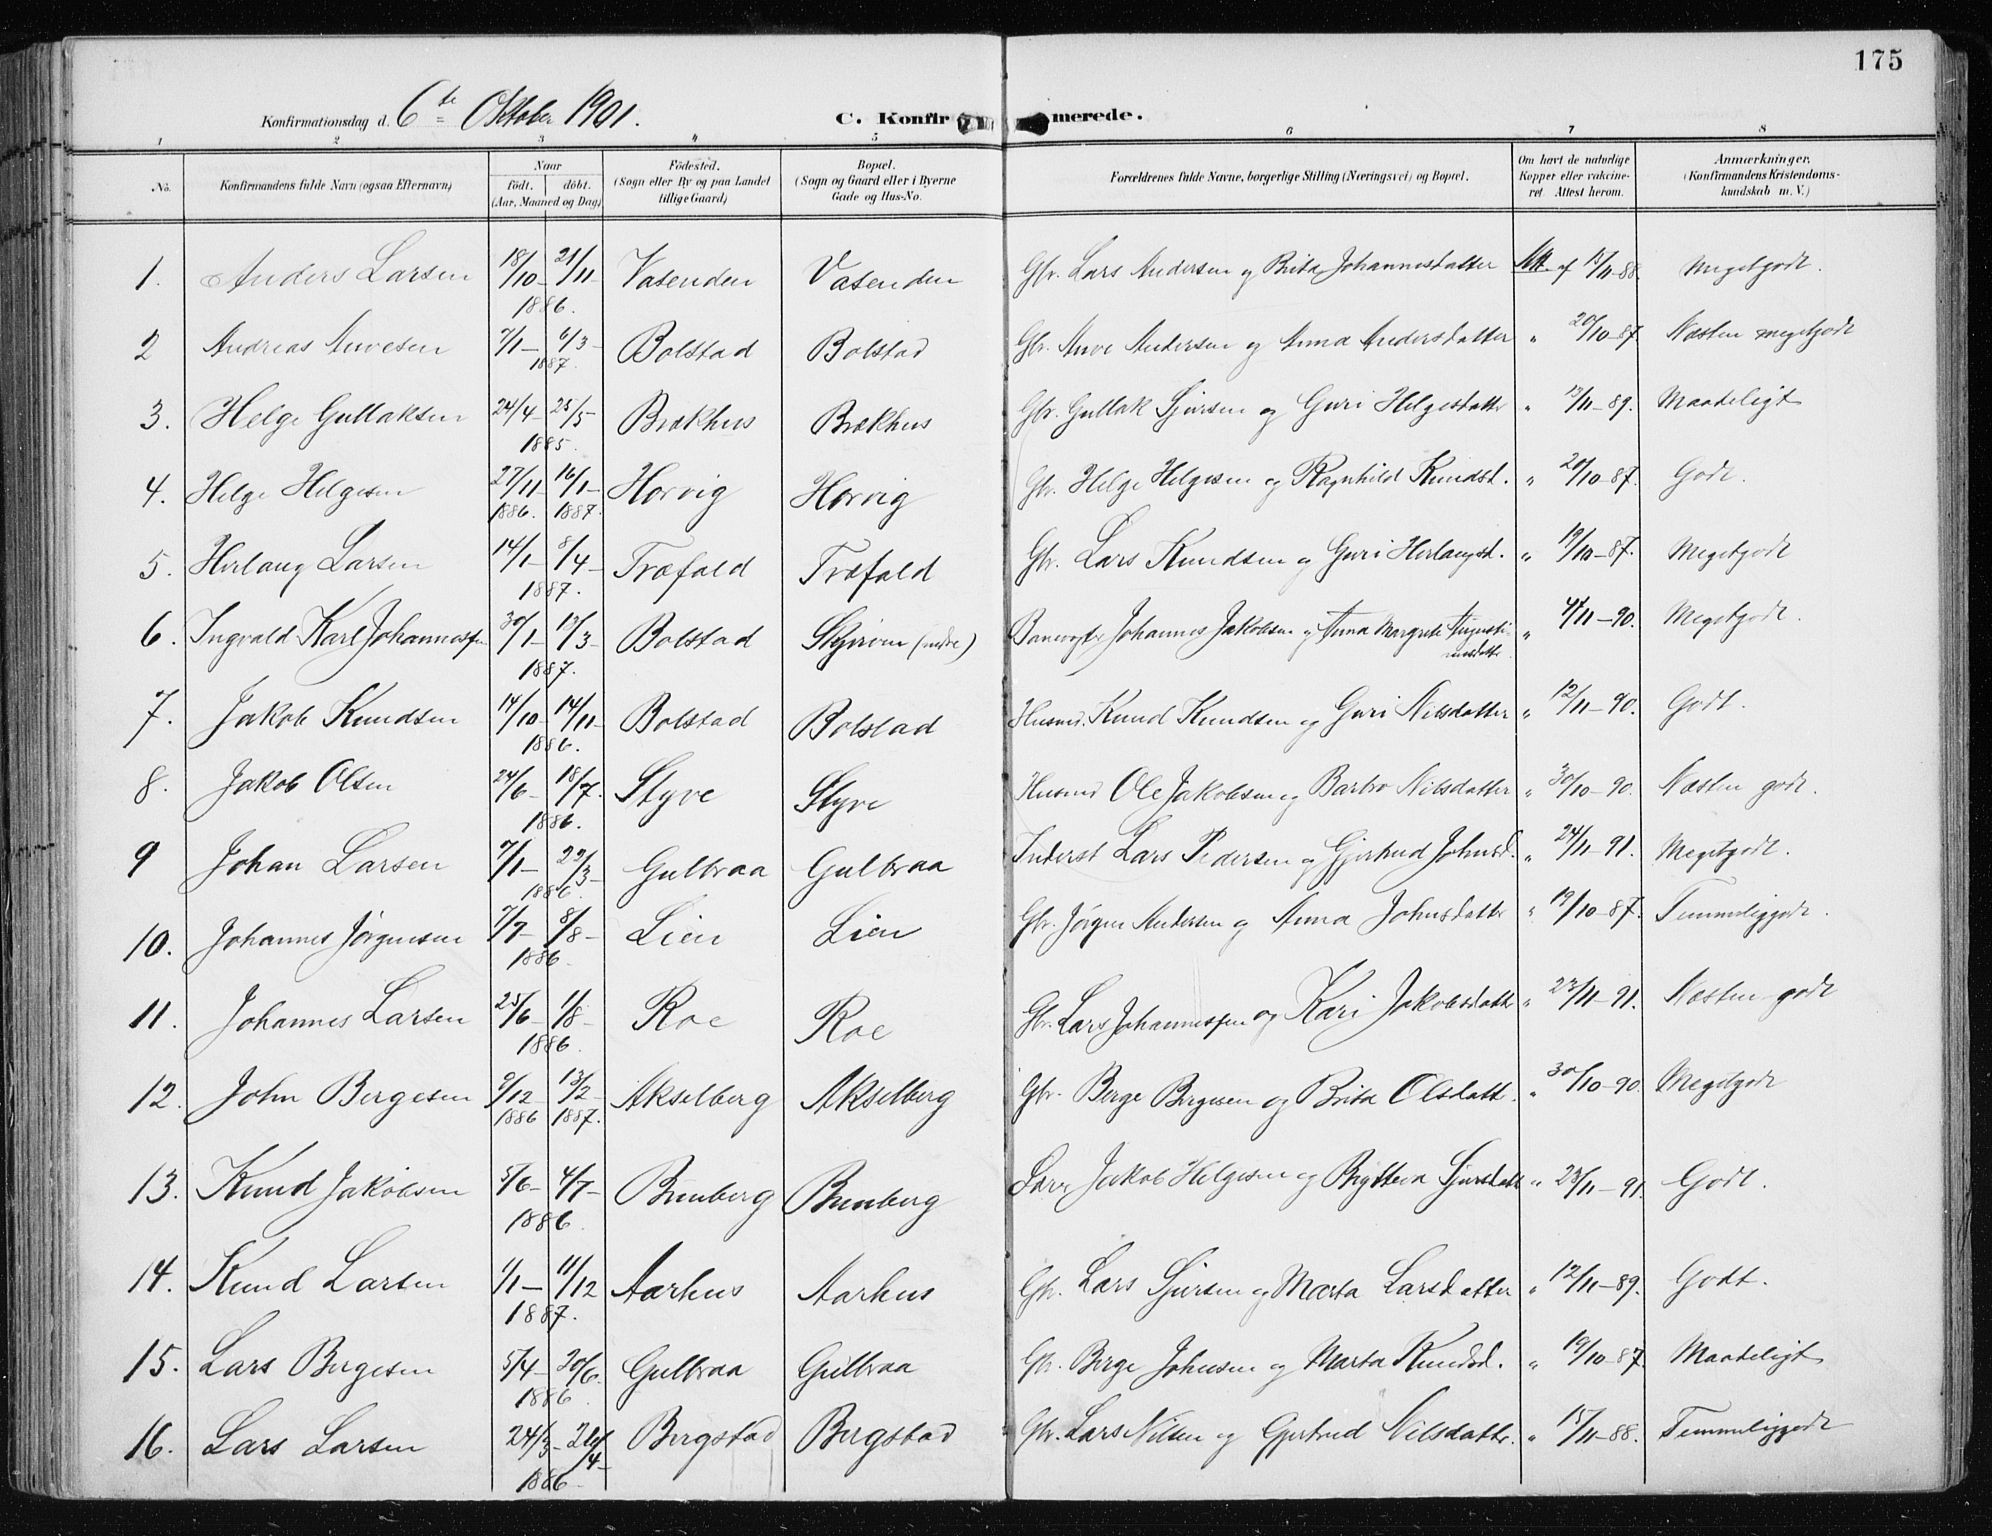 175
Konfirmationsdag d. 6te Oktober 1901. C. Konfirmerede.
1 2 3 4 5 6 7 8
No. Konfirmandens fulde Navn (ogsaa Efternavn) Naar født. døbt. (Aar, Maaned og Dag) Fødested. (Sogn eller By og paa Landet tillige Gaard) Bopæl. (Sogn og Gaard eller i Byerne Gade og Hus-No. Forældrenes fulde Navne, borgerlige Stilling (Næringsvei) og Bopæl. Om havt de naturlige Kopper eller vakcineret. Attest herom. Anmærkninger. (Konfirmandens Kristendomskundskab m. V.)
1. Anders Larsen 18/10 – 21/11 – 1886. Vasenden Vasenden Gbr. Lars Andersen og Brita Johannesdatter Att. af 15/11-88. Megetgodt.
2 Andreas Anvesen 7/1 – 6/3 – 1887. Bolstad Bolstad Gbr. Anve Andersen og Anna Andersdatter " 20/10-87. Næsten megetgodt
3. Helge Gullaksen 24/4 25/5 1885. Brækhus Brækhus Gbr. Gullak Sjursen og Guri Helgesdatter " 12/11-89. Maadeligt
4. Helge Helgesen 27/11 1886. 16/1 1887. Horvig Horvig Gbr. Helge Helgesen og Ragnhild Knudsd. " 20/10-87. Godt.
5. Herlaug Larsen 14/1 – 8/4 – 1887. Træfald Træfald Gbr. Lars Knudsen og Guri Herlaugsd. " 19/10-87. Megetgodt
6. Ingvald Karl Johannessen 30/1 – 13/3 – 1887. Bolstad Skjirven (nedre) Banevogter Johannes Jakobsen og Anna Margrete Augustinusdatter " 4/11-90. Megetgodt.
7. Jakob Knudsen 14/10 – 14/11 – 1886. Bolstad Bolstad Husmd. Knud Knudsen og Guri Nilsdatter " 12/11-90. Godt.
8. Jakob Olsen 24/6 – 18/7. 1886. Styve Styve Husmd Ole Jakobsen og Barbro Nilsdatter " 30/10-90. Næsten godt.
9 Johan Larsen 7/1 – 22/3 – 1886. Gulbraa Gulbraa Inderst Lars Pedersen og Gjertrud Johnsd. " 24/11-91. Megetgodt.
10. Johannes Jørgensen 7/7 – 8/8 – 1886. Lien Lien Gbr. Jørgen Andersen og Anna Johnsdatter " 19/10-87. Temmeliggodt.
11. Johannes Larsen 25/6 – 1/8 – 1886. Roe Roe Gbr. Lars Johannessen og Kari Jakobsdatter " 23/11-91. Næsten godt
12. John Bergesen 9/12 1886 13/2 – 1887. Akselberg Akselberg Gbr. Berge Bergesen og Brita Olsdatt. " 30/10-90. Megetgodt
13. Knud Jakobsen 5/6 – 4/7 – 1886. Bunberg Bunberg Jakob Helgesen og Brytteva Sjursdatt " 23/11-91. Godt.
14. Knud Larsen 1/1 – 11/12 1887. Aarhus Aarhus Gbr. Lars Sjursen og Marta Larsdatter " 12/11-89. Godt.
15. Lars Bergesen 5/4 – 20/6. 1886. Gulbraa Gulbraa Gbr. Berge Johnsen og Marta Knudsd. " 19/10-87. Maadeligt
16. Lars Larsen 24/3 – 26/4 – 1886. Bergstad Bergstad Gbr. Lars Nilsen og Gjertrud Nilsdatter. " 15/11-88. Temmeliggodt